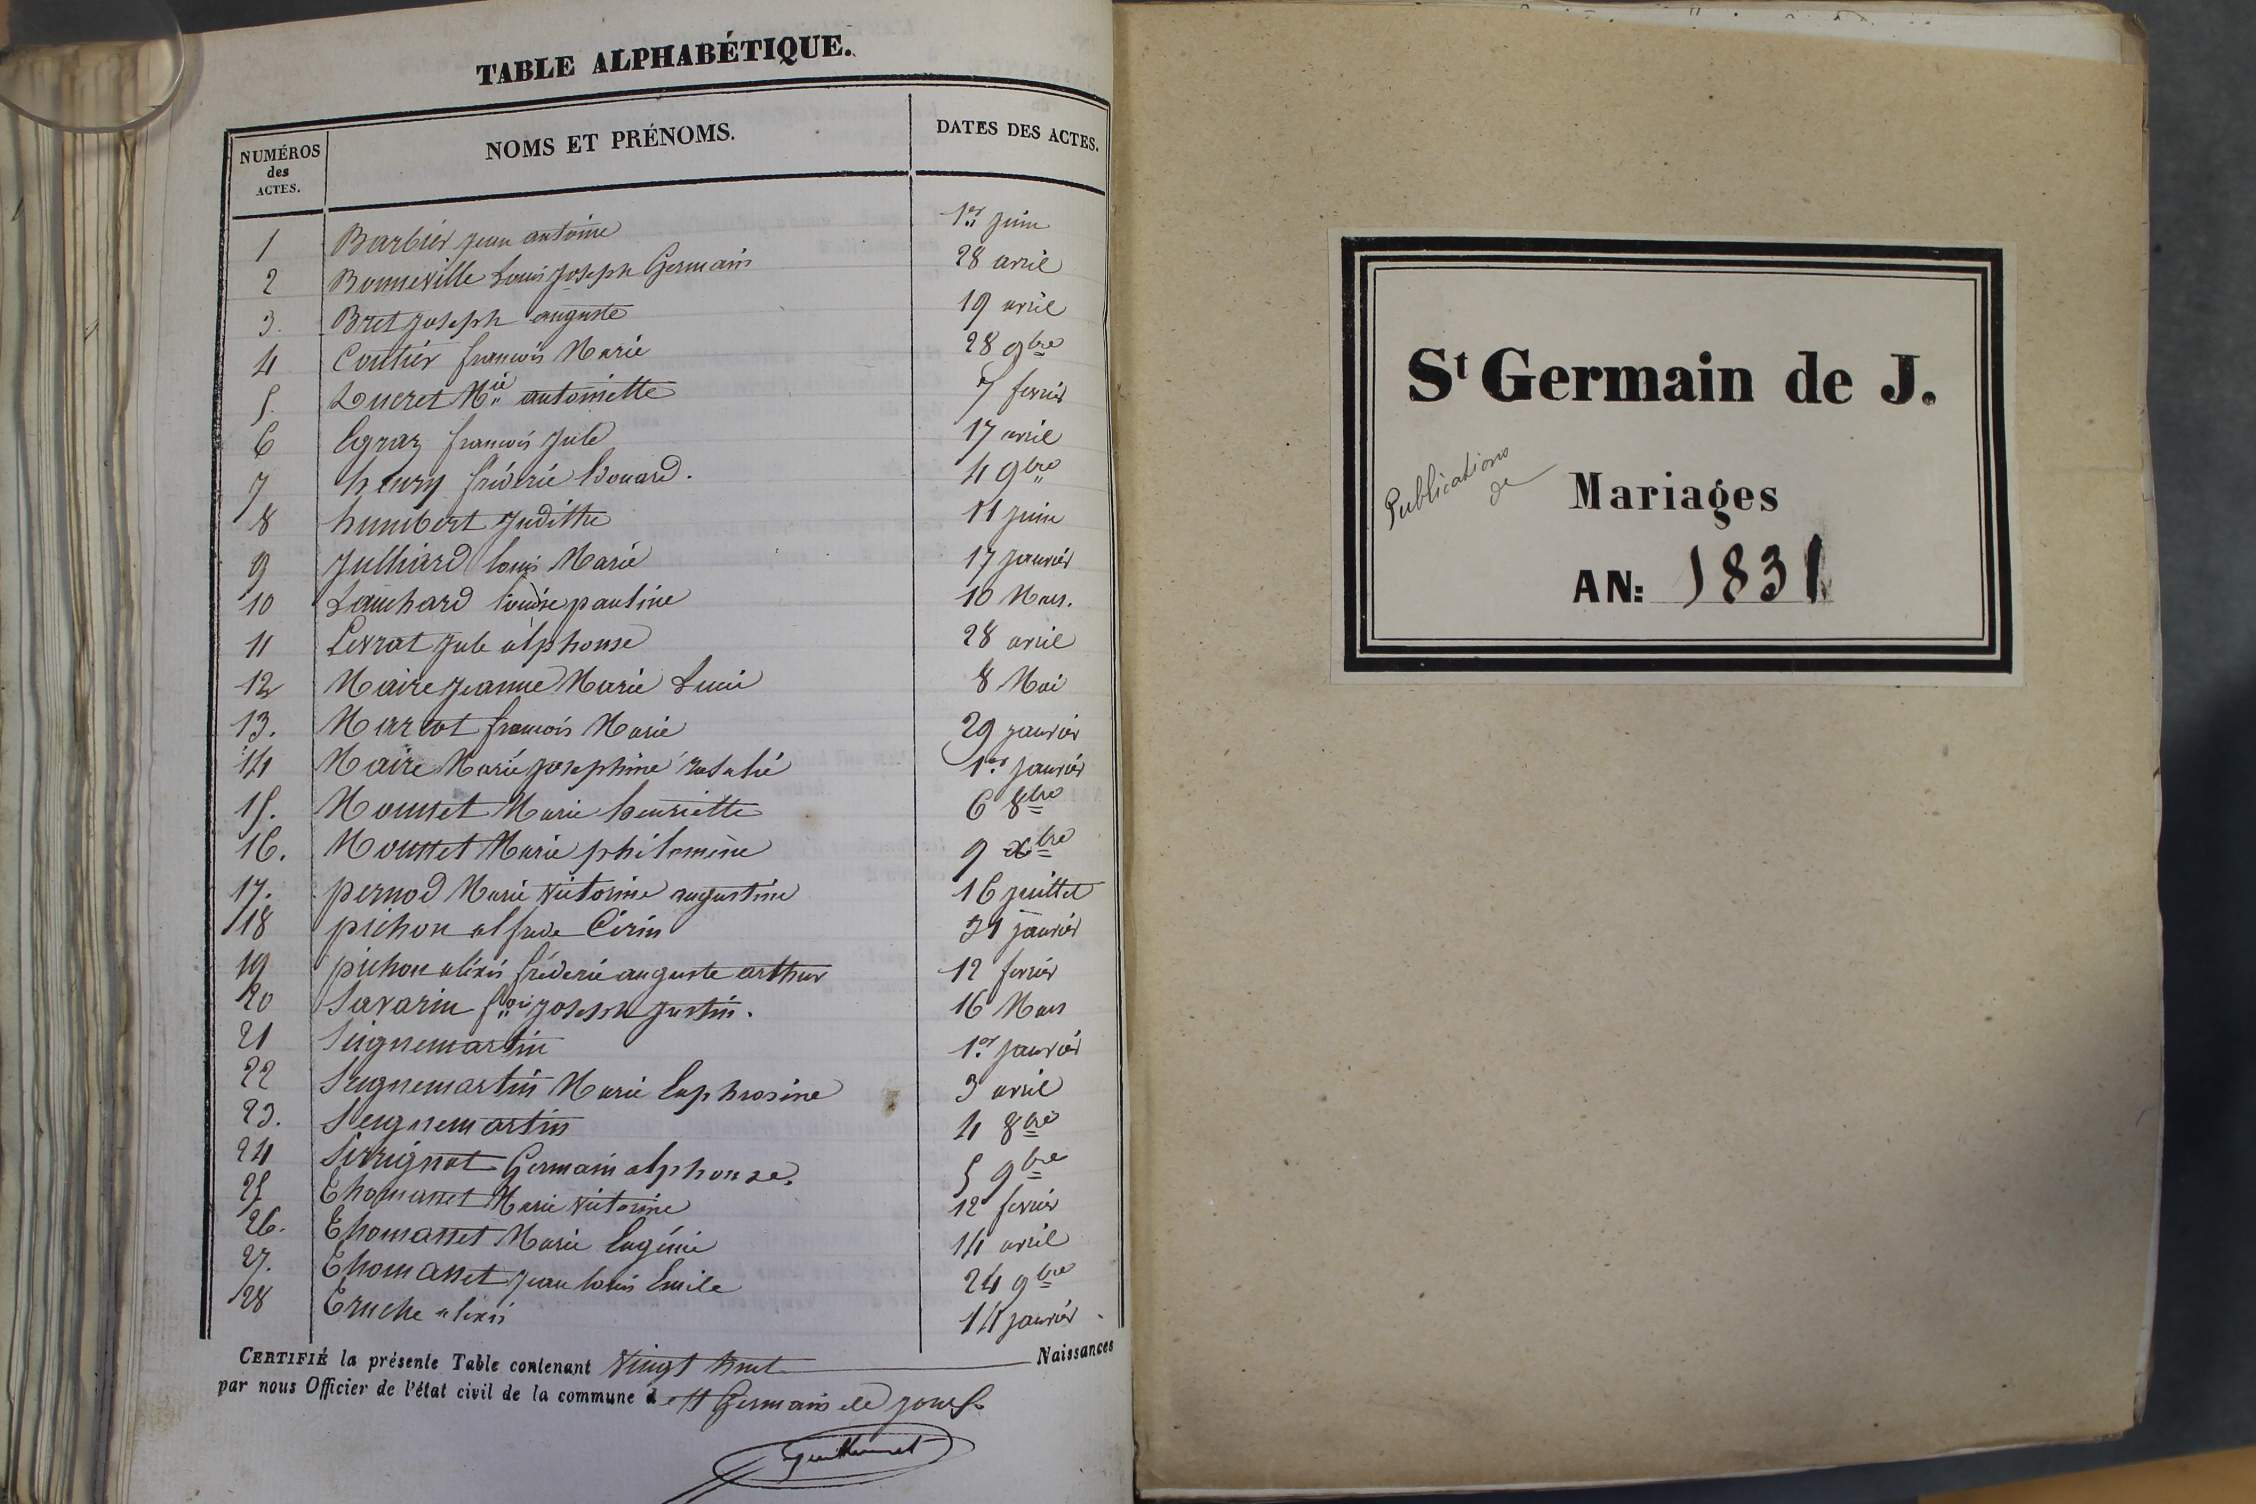 TABLE ALPHABÉTIQUE.
NUMÉROS des ACTES. NOMS ET PRÉNOMS. DATES DES ACTES.
1 Barbier jean antoine 1er juin
2 Bonneville Louis joseph Germain 28 avril
3. Bret joseph auguste 19 avril
4 Coutier francois Marie 28 9bre
5. Ducret Mie antoinette 7 fevrier
6 Egraz francois jule 17 avril
7 henry fréderic Edouard. 4 9bre
8 humbert judithe 11 juin
9 julliard louis Marie 17 janvier
10 Lanchard louise pauline 10 Mars.
11 Levrat jule alphonse 28 avril
12 Maire jeanne Marie Lucie 8 Mai
13. Marrot francois Marie 29 janvier
14 Maire Marie josephine rosalie 1er janvier
15. Mousset Marie henriette 6 8bre
16. Mousset Marie philomène 9 xbre
17. pernod Marie victorine augustine 16 juillet
18 pichon alfrede Cirin 31 janvier
19 pichon alexis fréderic auguste arthur 12 fevrier
20 Savarin fois joseph justin. 16 Mars
21 Seignemartin 1er janvier
22 Seignemartin Marie Euphrosine 3 avril
23. Seignemartin 4 8bre
24 Germain alphonse. 5 9bre
25 Thomasset Marie victorine 12 fevrier
26. Thomasset Marie Eugénie 14 avril
27. Thomasset jean louis Emile 24 9bre
28 Truche alexis 14 janvier
CERTIFIÉ la présente Table contenant vingt huit Naissances
par nous Officier de l'état civil de la commune de St Germain de joux
Guillermet
St Germain de J.
Publications
de
Mariages
AN: 1831